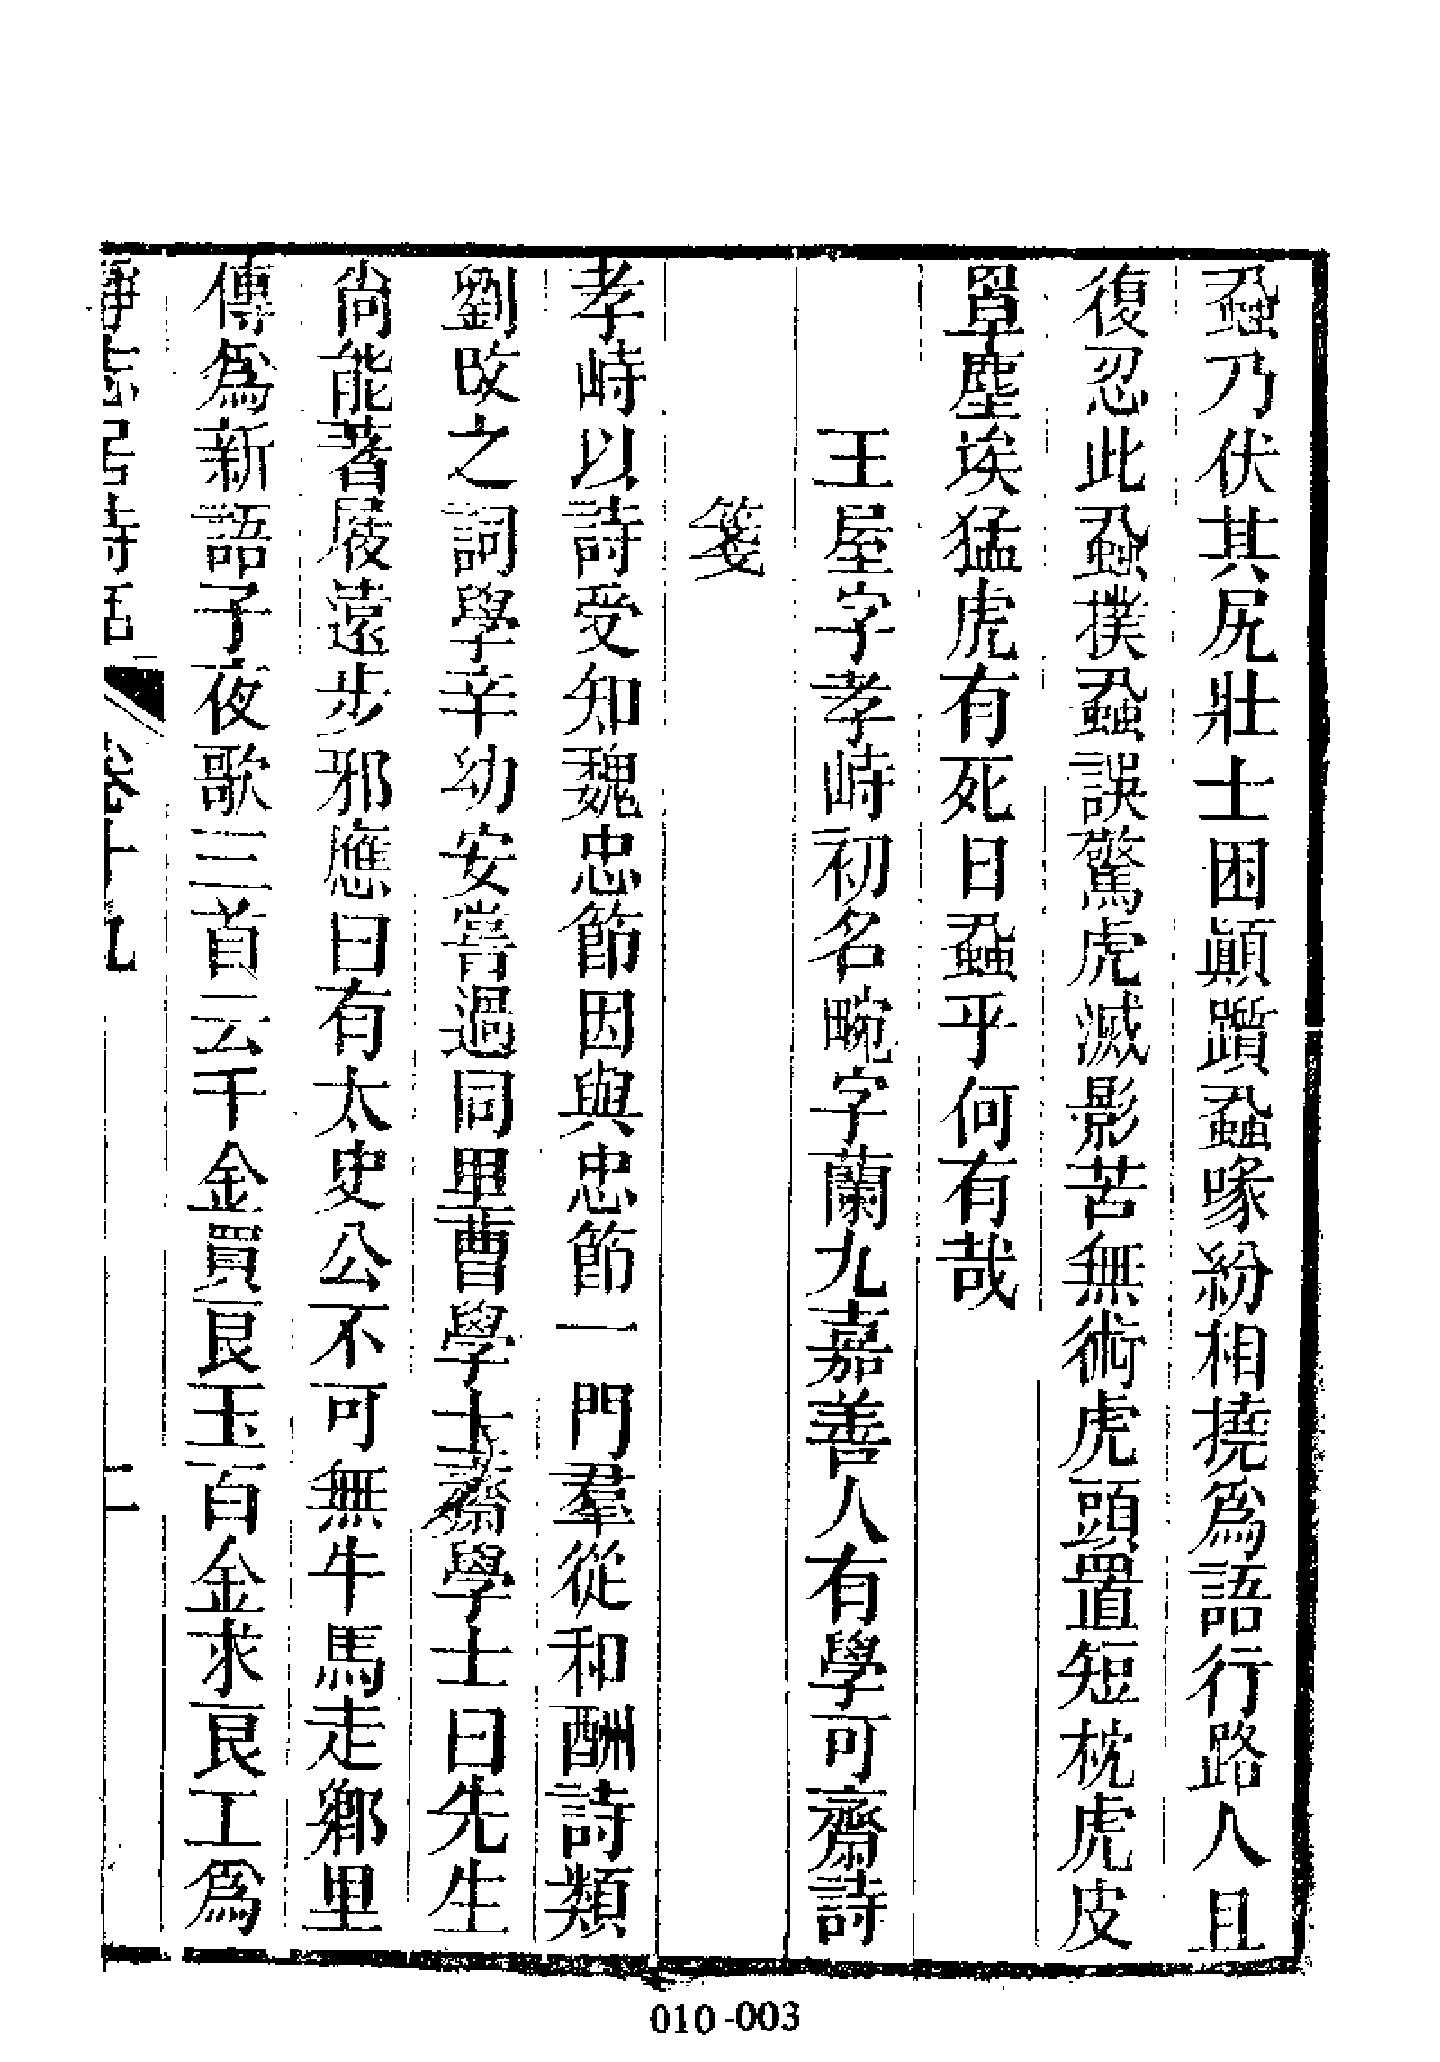 蝨乃伏其尻壯士困顚躓蝨喙紛相撓爲語行路人且
復忍此蝨撲蝨誤驚虎滅影苦無術虎頭置短枕虎皮
單塵埃猛虎有死日蝨乎何有哉
王屋字孝峙初名畹字蘭九嘉善人有學可齋詩
箋
孝峙以詩受知魏忠節因與忠節一門羣從和酬詩類
劉改之詞學辛幼安嘗過同里曹學士義齋學士曰先生
尙能著屐遠步邪應曰有太史公不可無牛馬走鄉里
傳爲新語子夜歌三首云千金買良玉百金求良工爲
靜志居詩話 卷十九 二
010-003